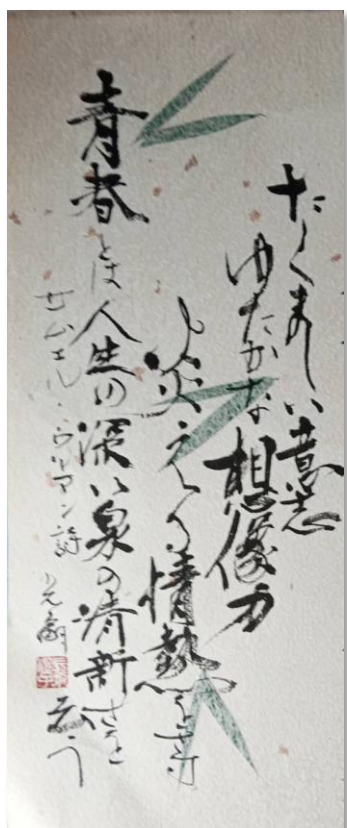 たくましい意志
ゆたかな想像力
炎える情熱をさす
青春とは人生の深い泉の清新さを
いう
サムエル・ウルマン詩